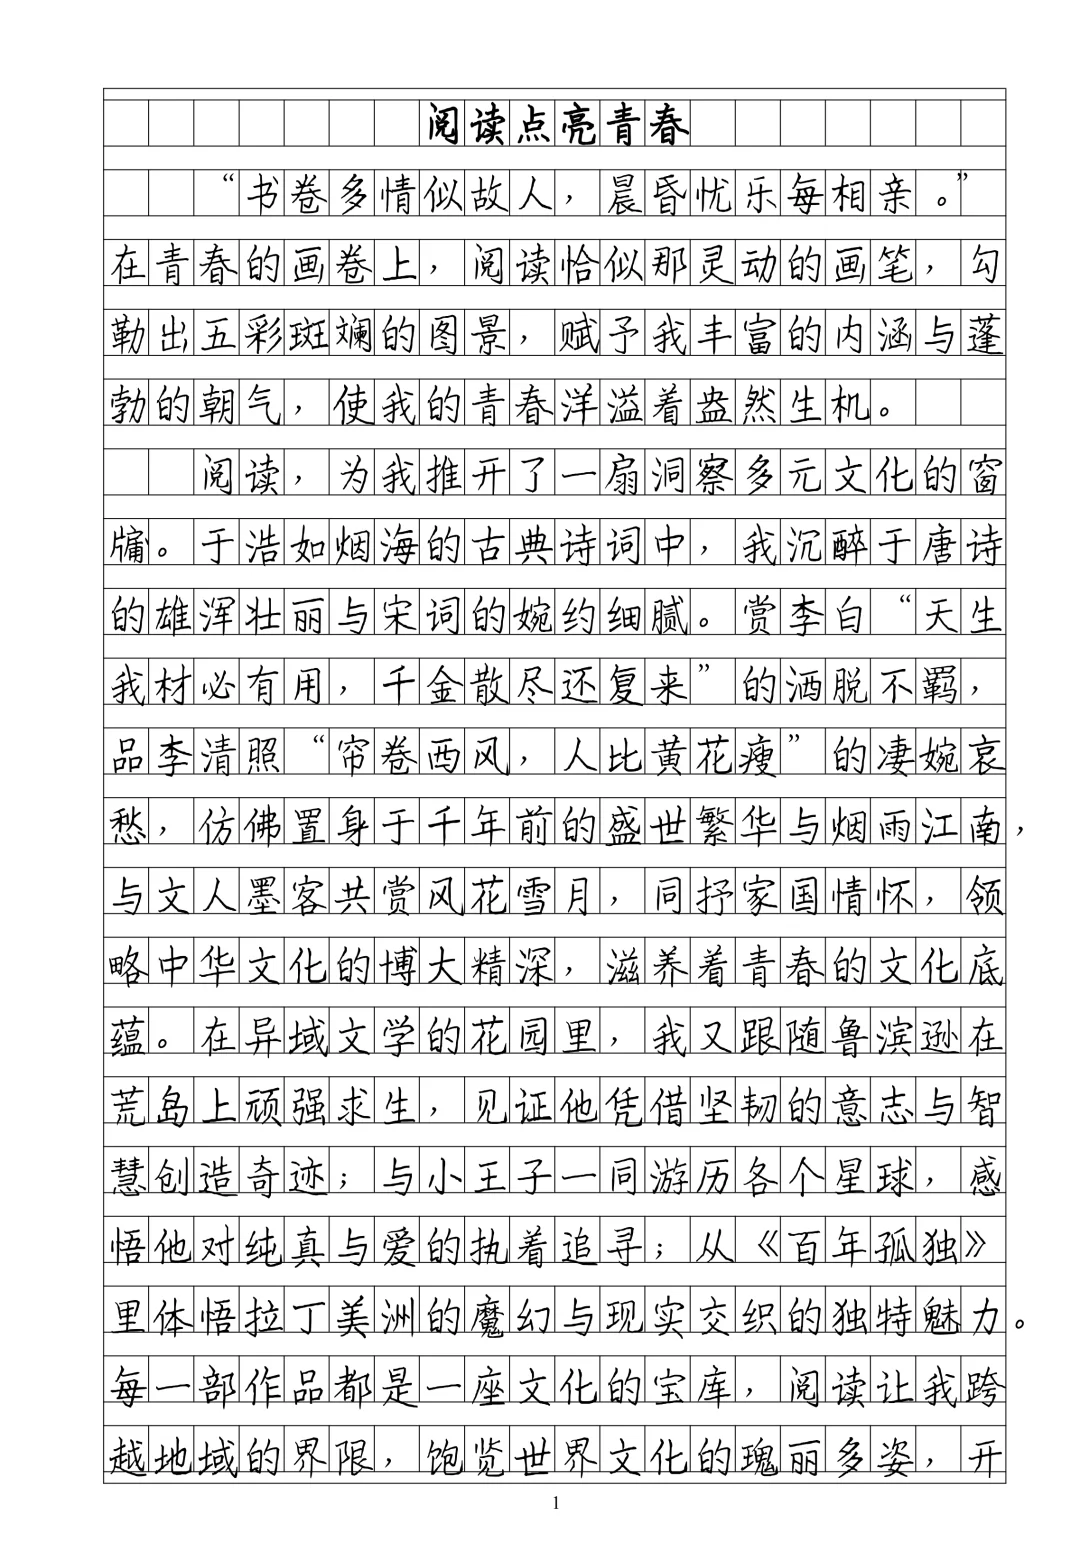 阅读点亮青春
“书卷多情似故人，晨昏忧乐每相亲。”
在青春的画卷上，阅读恰似那灵动的画笔，勾
勒出五彩斑斓的图景，赋予我丰富的内涵与蓬
勃的朝气，使我的青春洋溢着盎然生机。
阅读，为我推开了一扇洞察多元文化的窗
牖。于浩如烟海的古典诗词中，我沉醉于唐诗
的雄浑壮丽与宋词的婉约细腻。赏李白“天生
我材必有用，千金散尽还复来”的洒脱不羁，
品李清照“帘卷西风，人比黄花瘦”的凄婉哀
愁，仿佛置身于千年前的盛世繁华与烟雨江南，
与文人墨客共赏风花雪月，同抒家国情怀，领
略中华文化的博大精深，滋养着青春的文化底
蕴。在异域文学的花园里，我又跟随鲁滨逊在
荒岛上顽强求生，见证他凭借坚韧的意志与智
慧创造奇迹；与小王子一同游历各个星球，感
悟他对纯真与爱的执着追寻；从《百年孤独》
里体悟拉丁美洲的魔幻与现实交织的独特魅力。
每一部作品都是一座文化的宝库，阅读让我跨
越地域的界限，饱览世界文化的瑰丽多姿，开
1